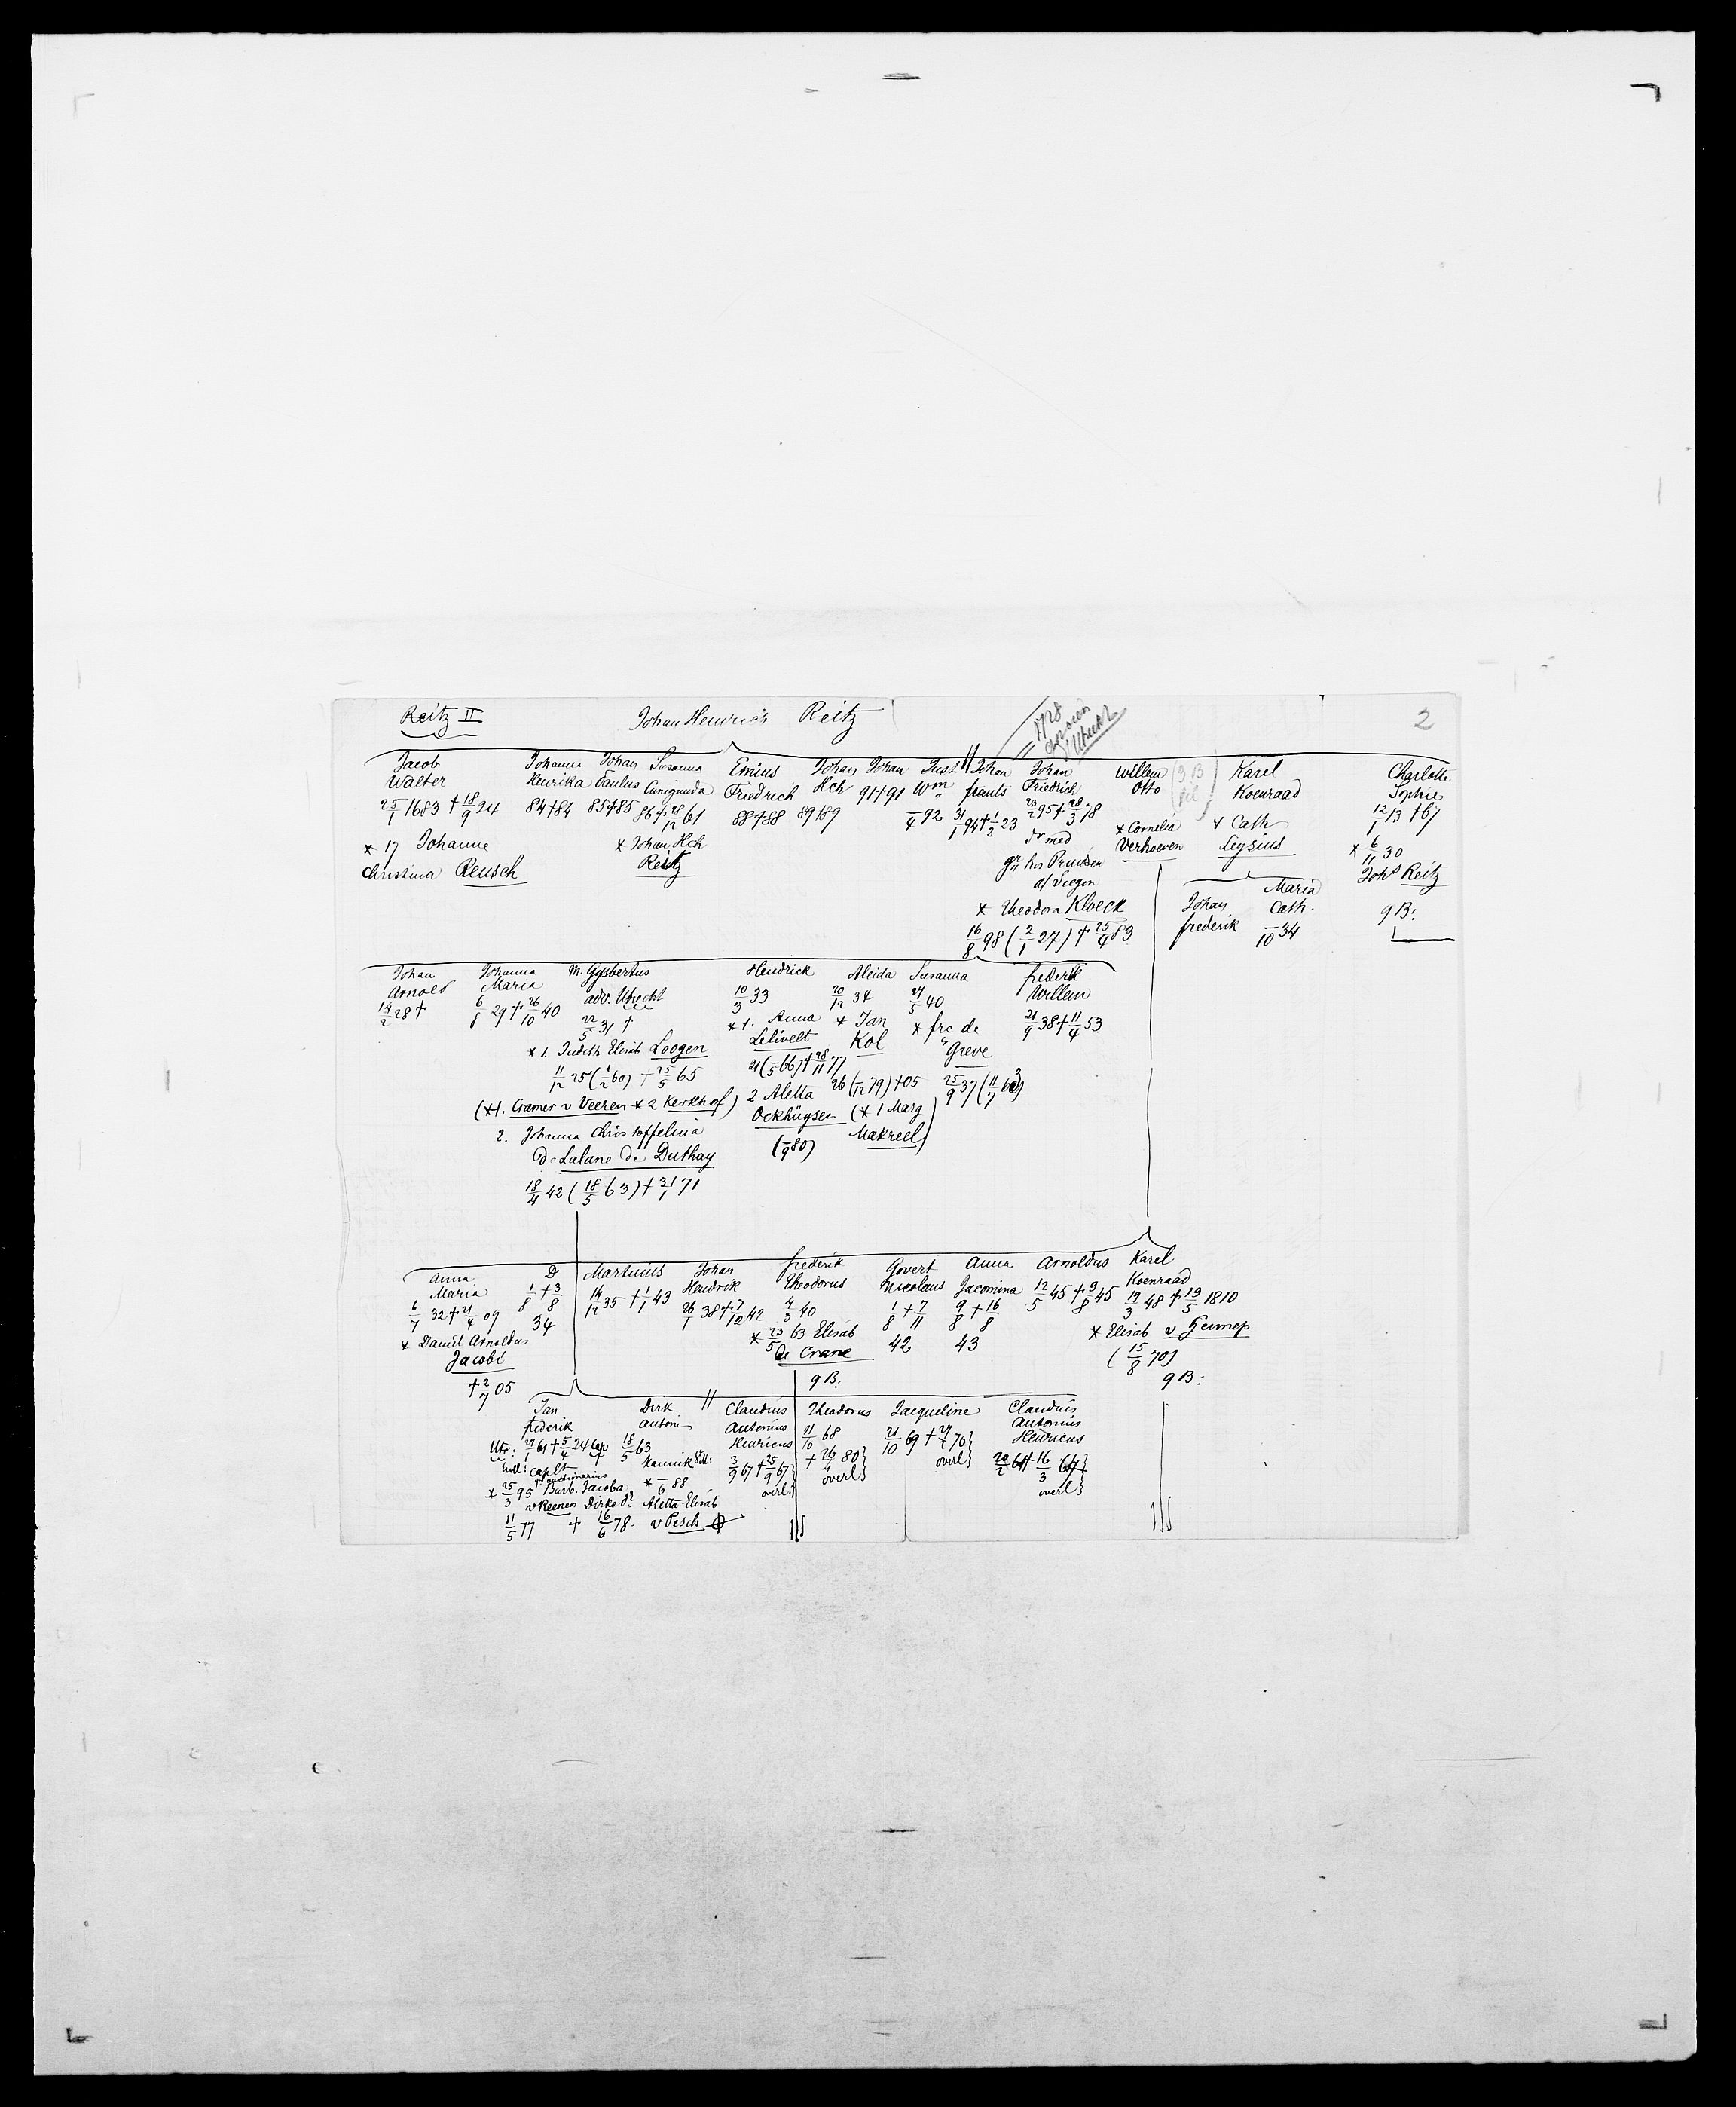 Reitz II
Johan Heinrich Reitz
1728
Utrecht
2
Jacob
Walter
25/1 1683 † 18/9 94
* 17 Johanne
Christina Reusch
Johanna
Henrika
84†84
Johan
Paulus
85†85
Susanna
Cunigunda
86† 28/12 61
* Johan Hch
Reitz
Ernius
Friedrich
88†88
Johan
Hch
89†89
Johan
91†91
Just
Wm
-/4 92
Johan
frants
31/1 94† 1/2 23
Johan
Friedrich
23/2 95† 28/3 78
Dr med
* Theodora Kloeck
16/8 98 (2/1 27) † 25/4 83
Willem
Otto
* Cornelia
Verhoeven
9 B
Karel
Koenraad
* Cath
Leysius
Johan
frederik
Maria
Cath.
-/10 34
Charlotte
Sophie
12/1 13 †61
* 6/11 30
Johs Reitz
9 B:
Johan
Arnold
14/2 28 †
Johanna
Maria
6/8 29 † 26/10 40
M. Gysbertus
adv. Utrecht
22/5 31 †
* 1. Judith Elisab Loogen
11/12 25 (1/2 60) † 25/5 65
(*1. Cramer v Veeren * 2 Kerkhof)
2. Johanna Christoffelina
de Lalane de Duthay
18/4 42 (18/5 63) † 31/1 71
Hendrick
10/3 33
* 1. Anna
Lelivelt
21 (-/5 66) † 28/11 77
2 Aletta
Ockhuysen
(-/9 80)
Aleida
20/12 34
* Jan
Kol
26 (-/12 79) †05
(* 1 Marg
Makreel)
Susanna
27/5 40
* frc de
Greve
25/9 37 (11/7 63)
frederik
Willem
21/9 38 † 11/4 53
Anna
Maria
6/7 32 † 21/4 09
* Daniel Arnoldus
Jacobi
† 2/7 05
D
1/8 † 3/8
34
Martinus
14/12 35 † 1/1 43
Johan
Hendrik
26/1 38 † 7/12 42
frederik
Theodorus
4/3 40
* 23/5 63 Elisab
de Crane
9 B:
Govert
Nicolaus
1/8 † 7/11
42
Anna
Jacomina
9/8 † 16/8
43
Arnoldus
12/5 45 † 9/8 45
Karel
Koenraad
19/3 48 † 19/5 1810
* Elisab v Gennep
(15/8 70)
9 B:
Jan
frederik
Utr: 27/1 61 † 5/4 24
* 25/3 95 Barb. Jacoba
v Reenen Dirks dr
11/5 77 † 16/6 78.
Dirk
Antoni
18/5 63
* -/6 88
Aletta Elisab
v Pesch
Claudius
Antonius
Henricus
3/9 67 † 25/9 67
overl
Theodorus
11/10 68
† 26/4 80
overl
Jacqueline
21/10 69 † 27/2 70
overl
Claudius
Antonius
Henricus
20/2 64 † 16/3 64
overl